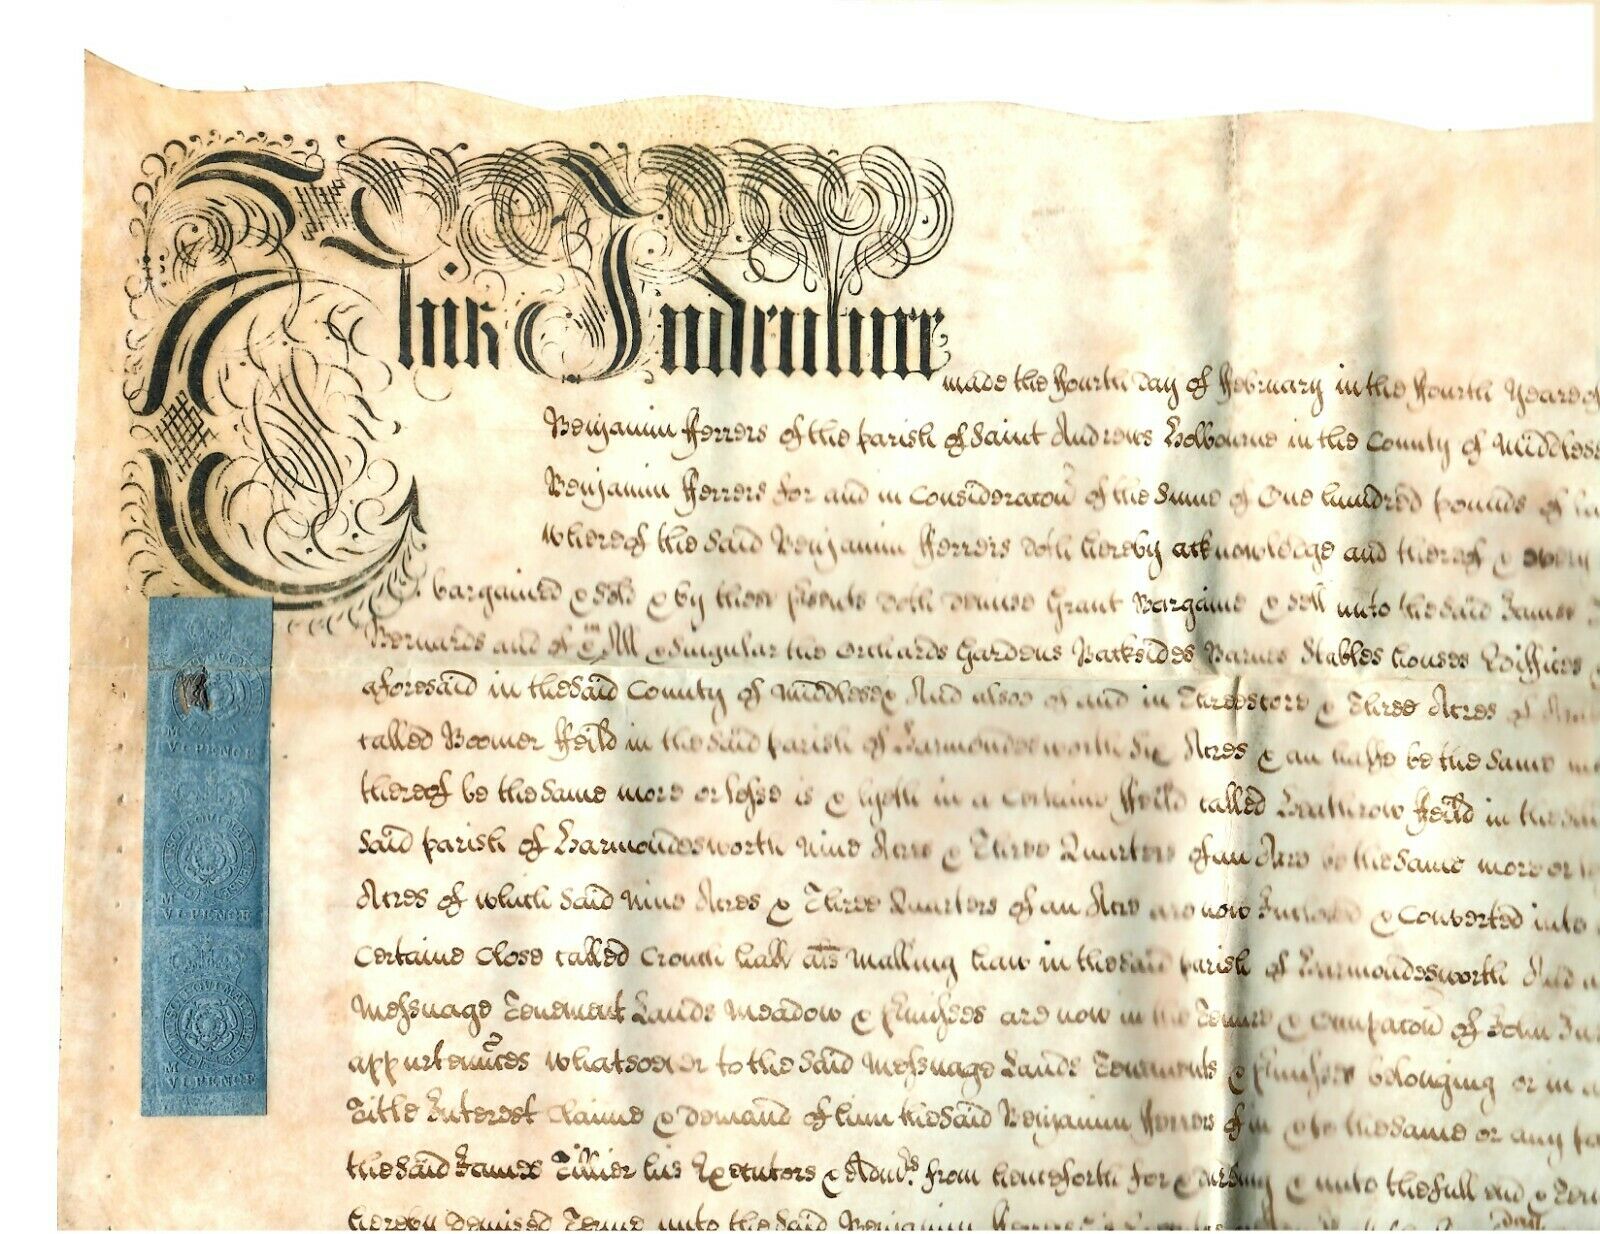 This Indenture
made the Fourth day of February in the Fourth Yeare of
Benjamin Ferrers of the parish of Saint Andrews Holbourne in the County of Middlesex
Benjamin Ferrers for and in Consideratōn of the Sume of One hundred pounds of
whereof the said Benjamin Ferrers doth hereby acknowledge and thereof & every
bargained & sold & by these psents doth demise Grant Bargaine & sell unto the said James
Bernards and of in All & Singular the Orchards Gardens Backsides Barnes Stables houses Ediffices
aforesaid in the said County of Middlesex And alsoe of and in Threescore & Three Acres of
called Boomer Feild in the said parish of Harmondesworth Six Acres & an halfe be the same
thereof be the same more or lesse is & lyeth in a certaine Feild called Heathrow Feild in the said
said parish of Harmondesworth Nine Acres & Three Quarters of an Acre be the same more or
Acres of which said Nine Acres & Three Quarters of an Acre are now Inclosed & Converted into
Certaine Close called Crouch hall ats Malling haw in the said parish of Harmondesworth And
Messuage Tenement Lands Meadow & pmisses are now in the Tenure & Occupacoñ of John
appurtenñces whatsoever to the said Messuage Lands Tenements & pmisses belonging or in
Title Interest Claime & demand of him the said Benjamin Ferrers of in & to the same or any
the said James Tillier his Executors & Admrs from henceforth for & during & unto the full end &
hereby demised Terme unto the said Benjamin Ferrers
VI PENCE
M
VI PENCE
M
VI PENCE